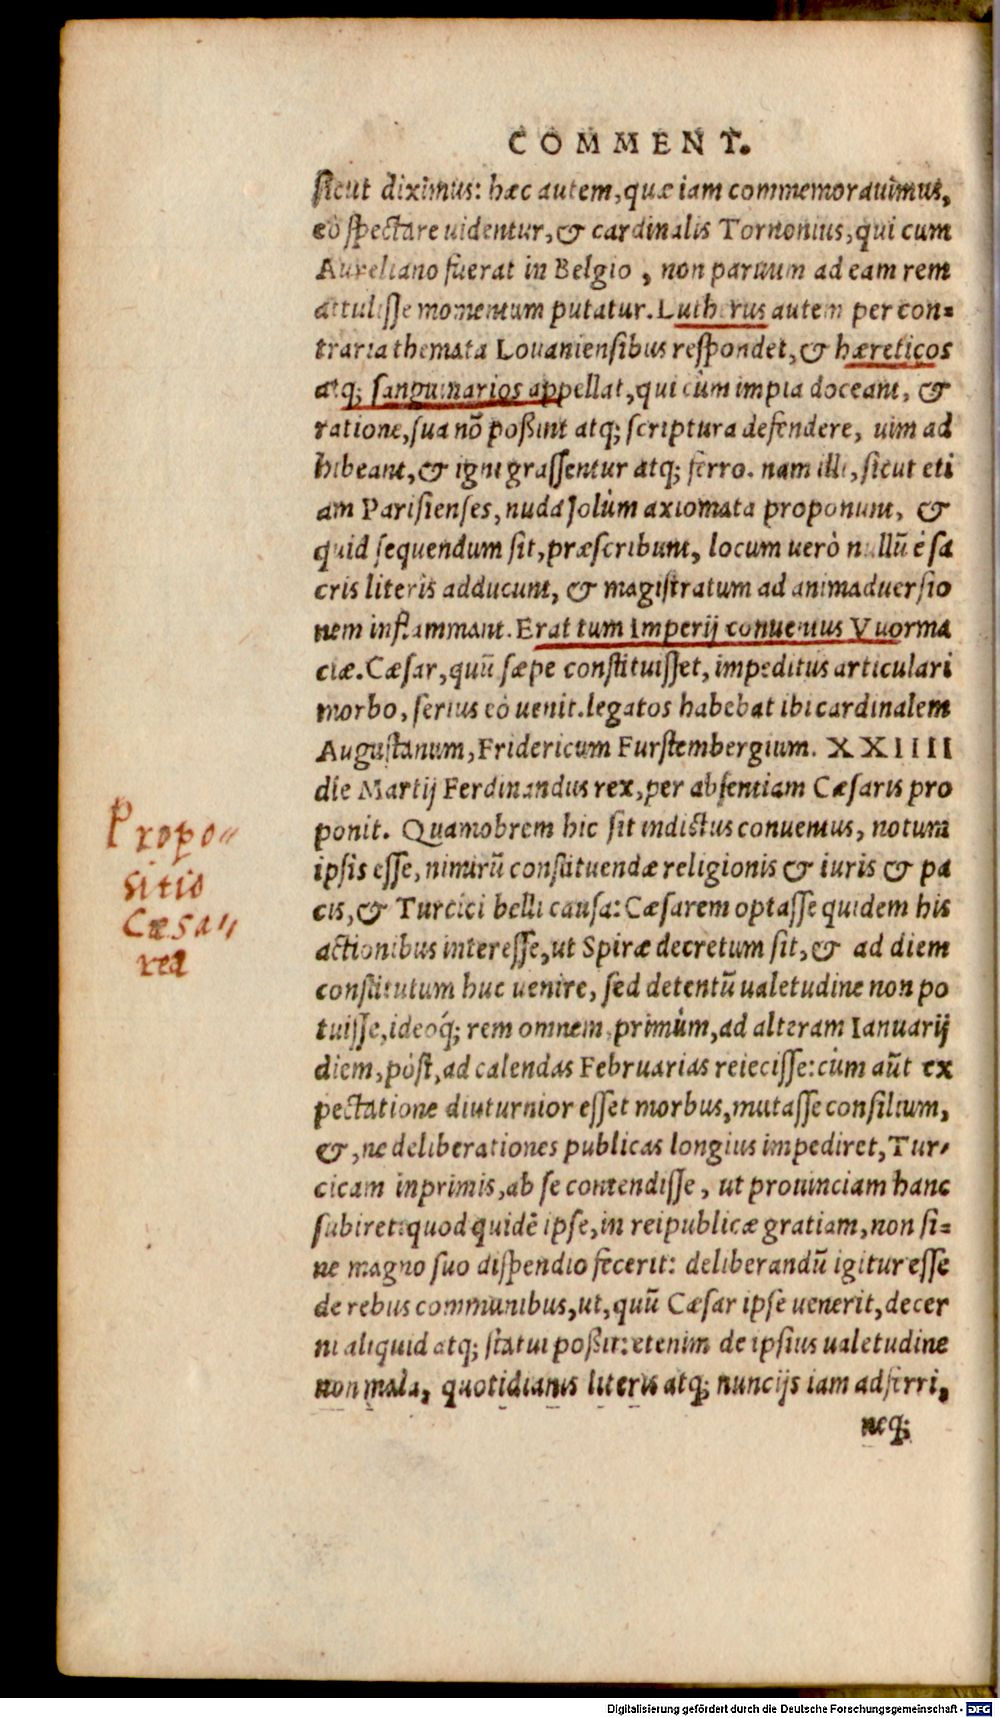 COMMENT.
sicut diximus: hæc autem, quæ iam commemorauimus,
eò spectare uidentur, & cardinalis Tornonius, qui cum
Aureliano fuerat in Belgio, non paruum ad eam rem
attulisse momentum putatur. Lutherus autem per con=
traria themata Louaniensibus respondet, & hæreticos
atq; sanguinarios appellat, qui cùm impia doceant, &
ratione, sua nõ poßint atq; scriptura defendere, uim ad
hibeant, & igni grassentur atq; ferro. nam illi, sicut eti
am Parisienses, nuda solùm axiomata proponunt, &
quid sequendum sit, præscribunt, locum uerò nullũ è sa
cris literis adducunt, & magistratum ad animaduersio
nem inflammant. Erat tum Imperij conuentus Vuorma
ciæ. Cæsar, quũ sæpe constituisset, impeditus articulari
morbo, serius eò uenit. legatos habebat ibi cardinalem
Augustanum, Fridericum Furstembergium. XXIIII
die Martij Ferdinandus rex, per absentiam Cæsaris pro
ponit. Quamobrem hic sit indictus conuentus, notum
ipsis esse, nimirũ constituendæ religionis & iuris & pa
cis, & Turcici belli causa: Cæsarem optasse quidem his
actionibus interesse, ut Spiræ decretum sit, & ad diem
constitutum huc uenire, sed detentũ ualetudine non po
tuisse, ideoq́; rem omnem primùm, ad alteram Ianuarij
diem, pòst, ad calendas Februarias reiecisse: cùm aũt ex
pectatione diuturnior esset morbus, mutasse consilium,
&, ne deliberationes publicas longius impediret, Tur-
cicam inprimis, ab se contendisse, ut prouinciam hanc
subiret: quod quidẽ ipse, in reipublicæ gratiam, non si=
ne magno suo dispendio fecerit: deliberandũ igitur esse
de rebus communibus, ut, quũ Cæsar ipse uenerit, decer
ni aliquid atq; statui poßit: etenim de ipsius ualetudine
non mala, quotidianis literis atq; nuncijs iam adferri,
neq;
Propo-
sitio
Cæsa-
rea
Digitalisierung gefördert durch die Deutsche Forschungsgemeinschaft - DFG